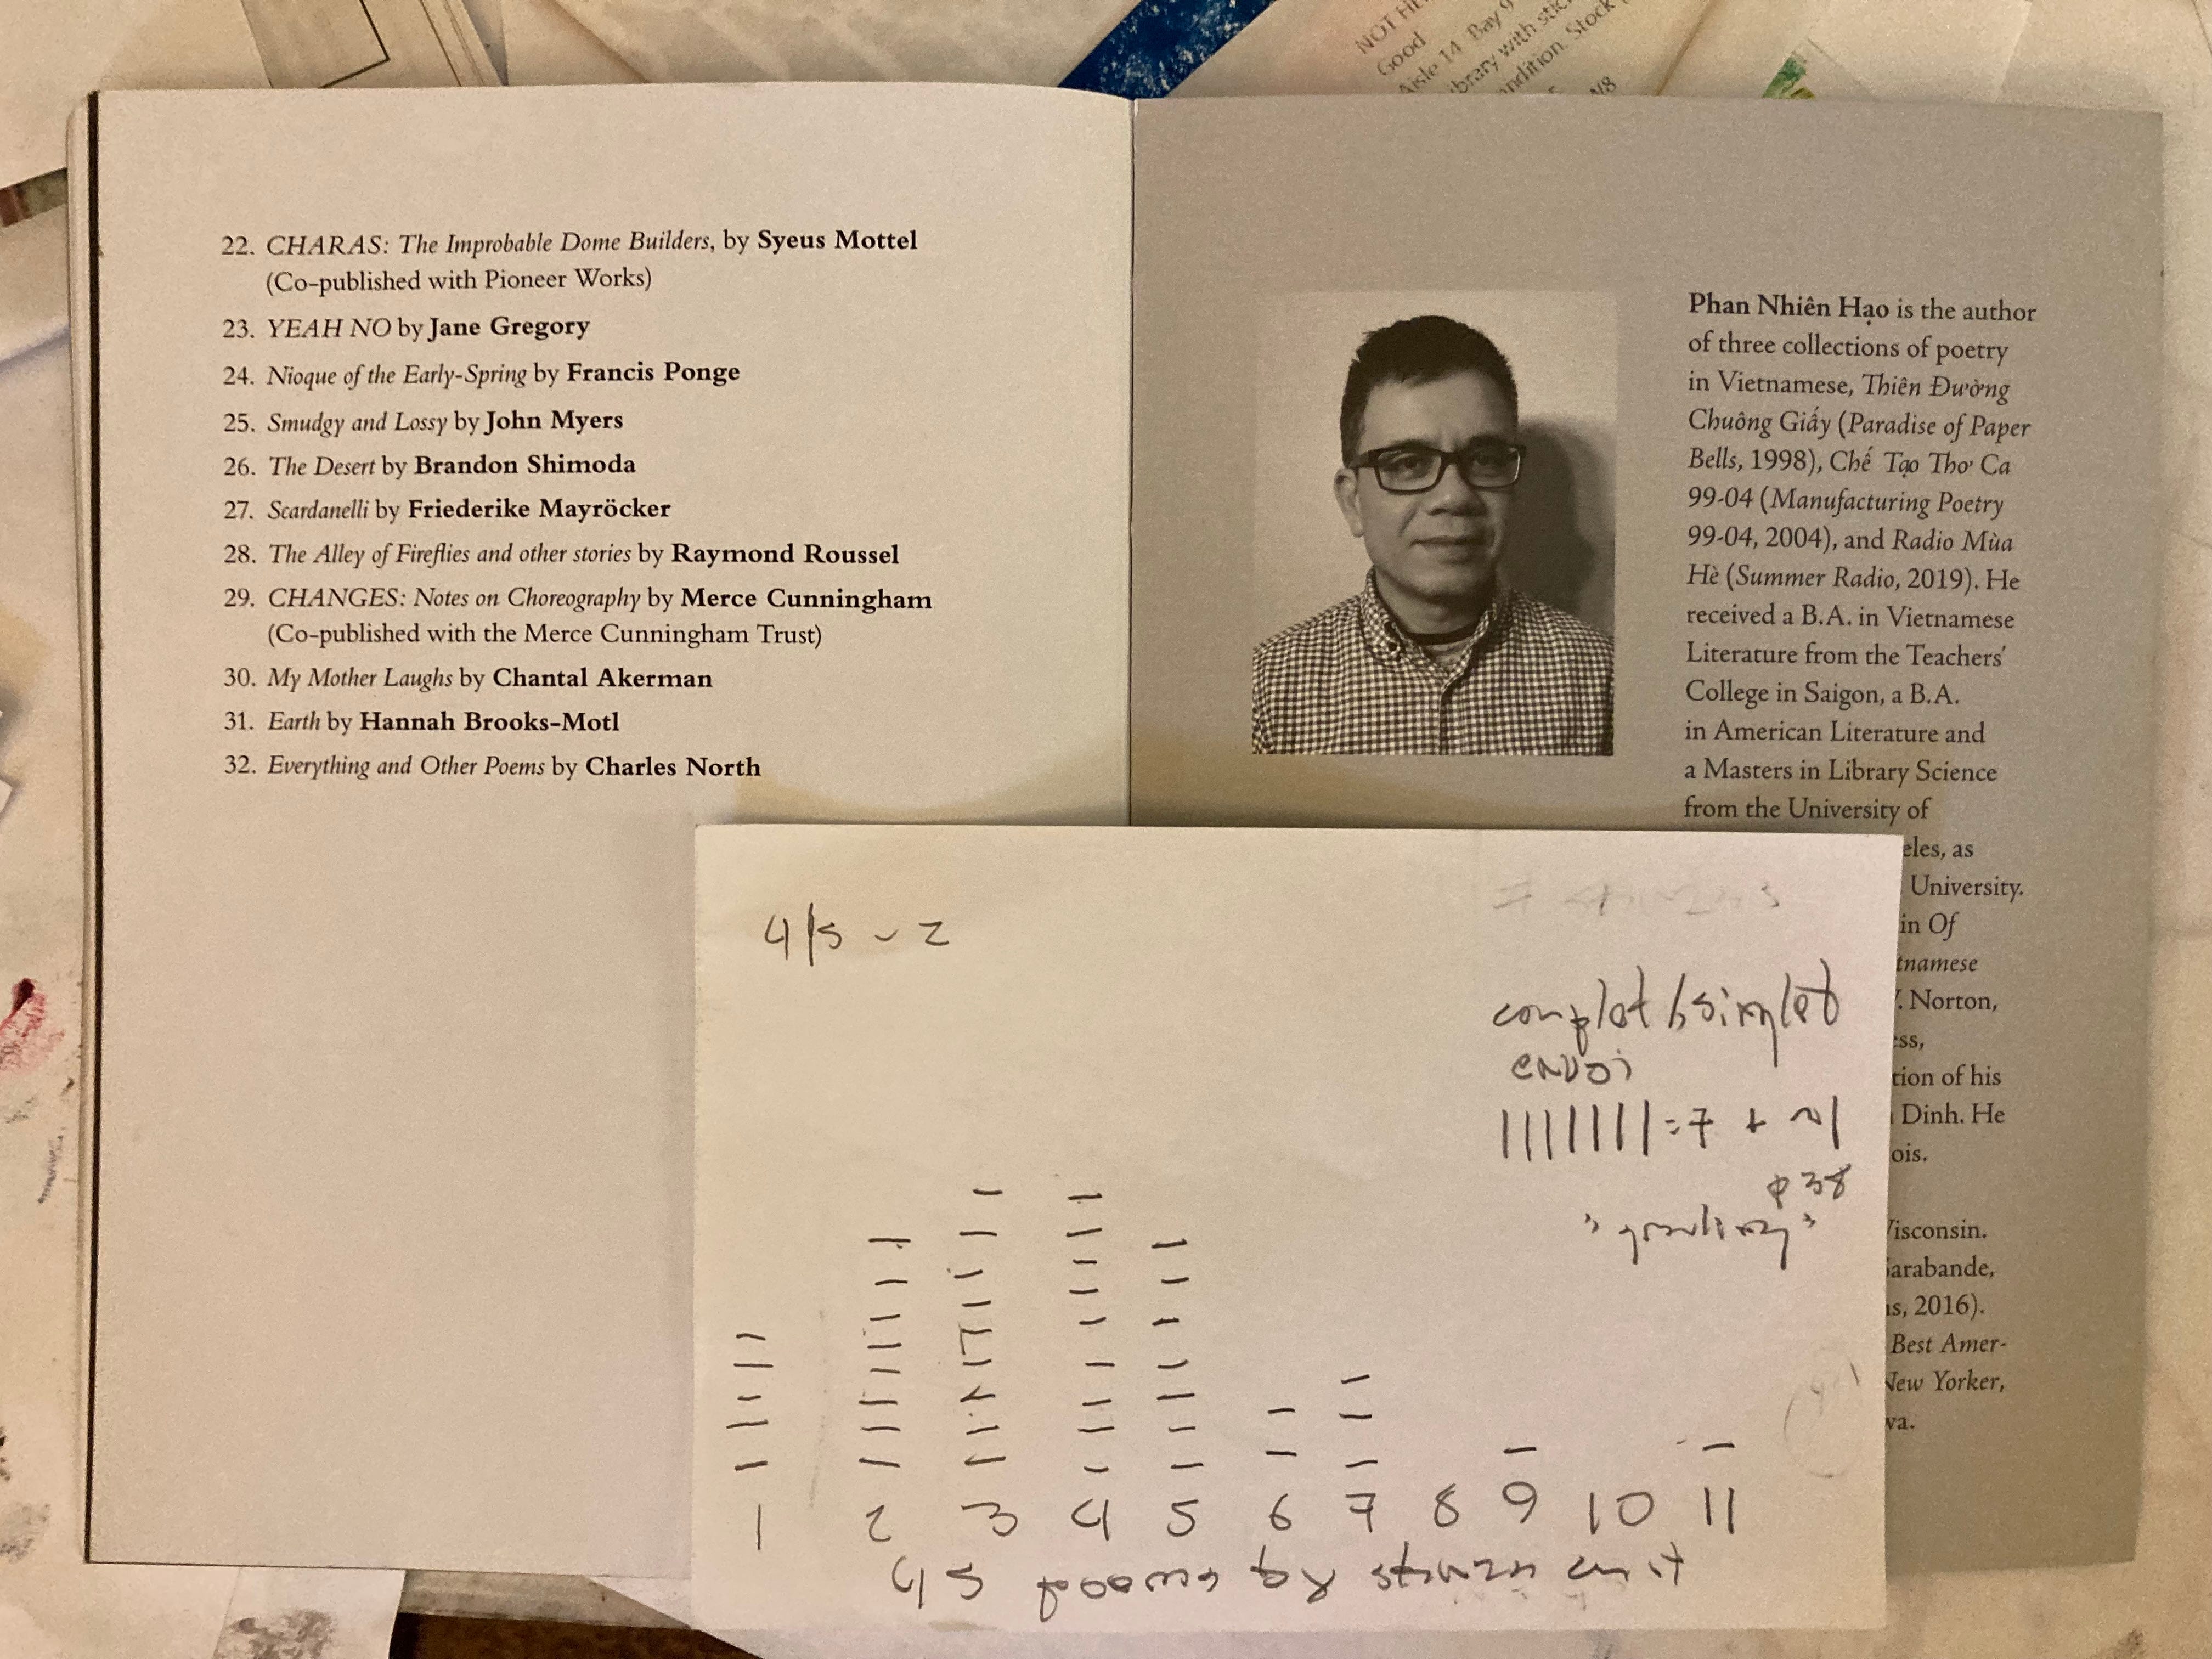 NOT HE
Good
Aisle 14 Bay 9
brary with stic
ndition. Stock
N8
22. CHARAS: The Improbable Dome Builders, by Syeus Mottel
(Co-published with Pioneer Works)
23. YEAH NO by Jane Gregory
24. Nioque of the Early-Spring by Francis Ponge
25. Smudgy and Lossy by John Myers
26. The Desert by Brandon Shimoda
27. Scardanelli by Friederike Mayröcker
28. The Alley of Fireflies and other stories by Raymond Roussel
29. CHANGES: Notes on Choreography by Merce Cunningham
(Co-published with the Merce Cunningham Trust)
30. My Mother Laughs by Chantal Akerman
31. Earth by Hannah Brooks-Motl
32. Everything and Other Poems by Charles North
Phan Nhiên Hạo is the author
of three collections of poetry
in Vietnamese, Thiên Đường
Chuông Giấy (Paradise of Paper
Bells, 1998), Chế Tạo Thơ Ca
99-04 (Manufacturing Poetry
99-04, 2004), and Radio Mùa
Hè (Summer Radio, 2019). He
received a B.A. in Vietnamese
Literature from the Teachers'
College in Saigon, a B.A.
in American Literature and
a Masters in Library Science
from the University of
eles, as
University.
in Of
tnamese
. Norton,
ess,
tion of his
Dinh. He
ois.
Visconsin.
Sarabande,
ns, 2016).
Best Amer-
New Yorker,
va.
4/5 ~ 2
couplet/singlet
envoi
||||||| = 7 + ~1
p 38
1 2 3 4 5 6 7 8 9 10 11
45 poems by stanza cnt